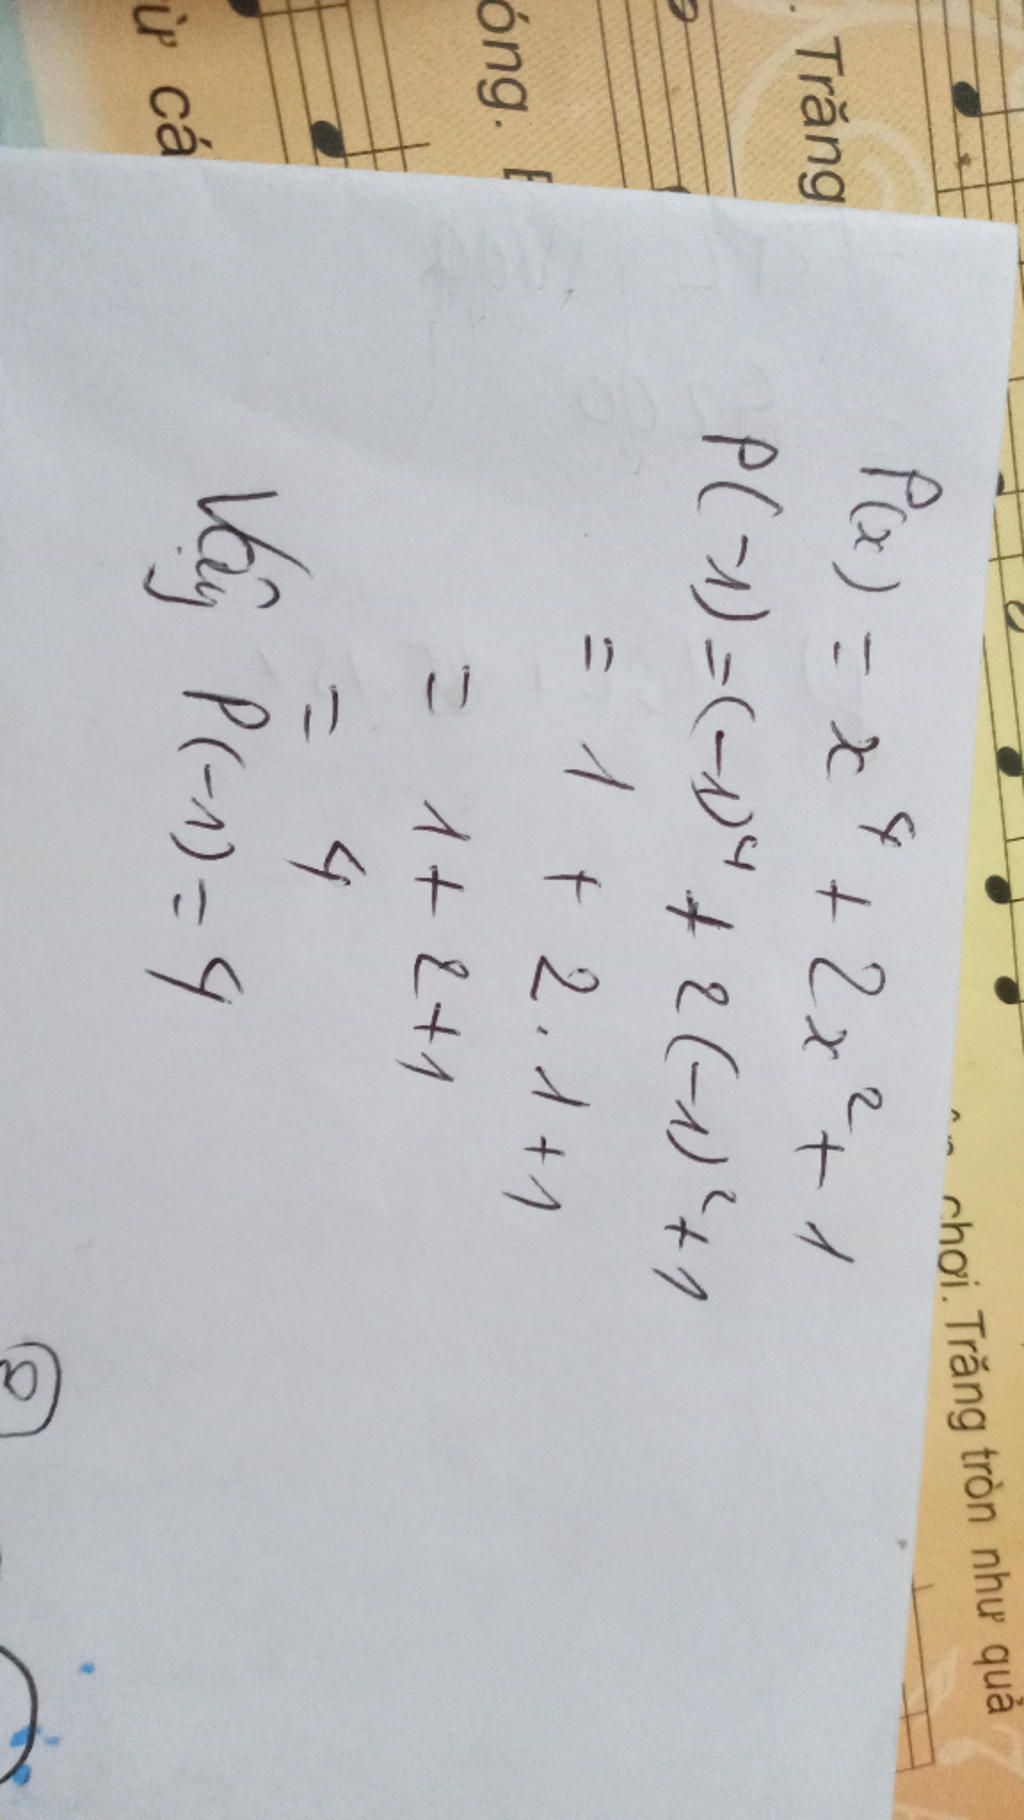 . Trăng
óng.
ừ cá
chơi. Trăng tròn như quả
P(x) = x⁴ + 2x² + 1
P(-1) = (-1)⁴ + 2(-1)² + 1
= 1 + 2.1+1
= 1+ 2+1
= 4
Vậy P(-1) = 4